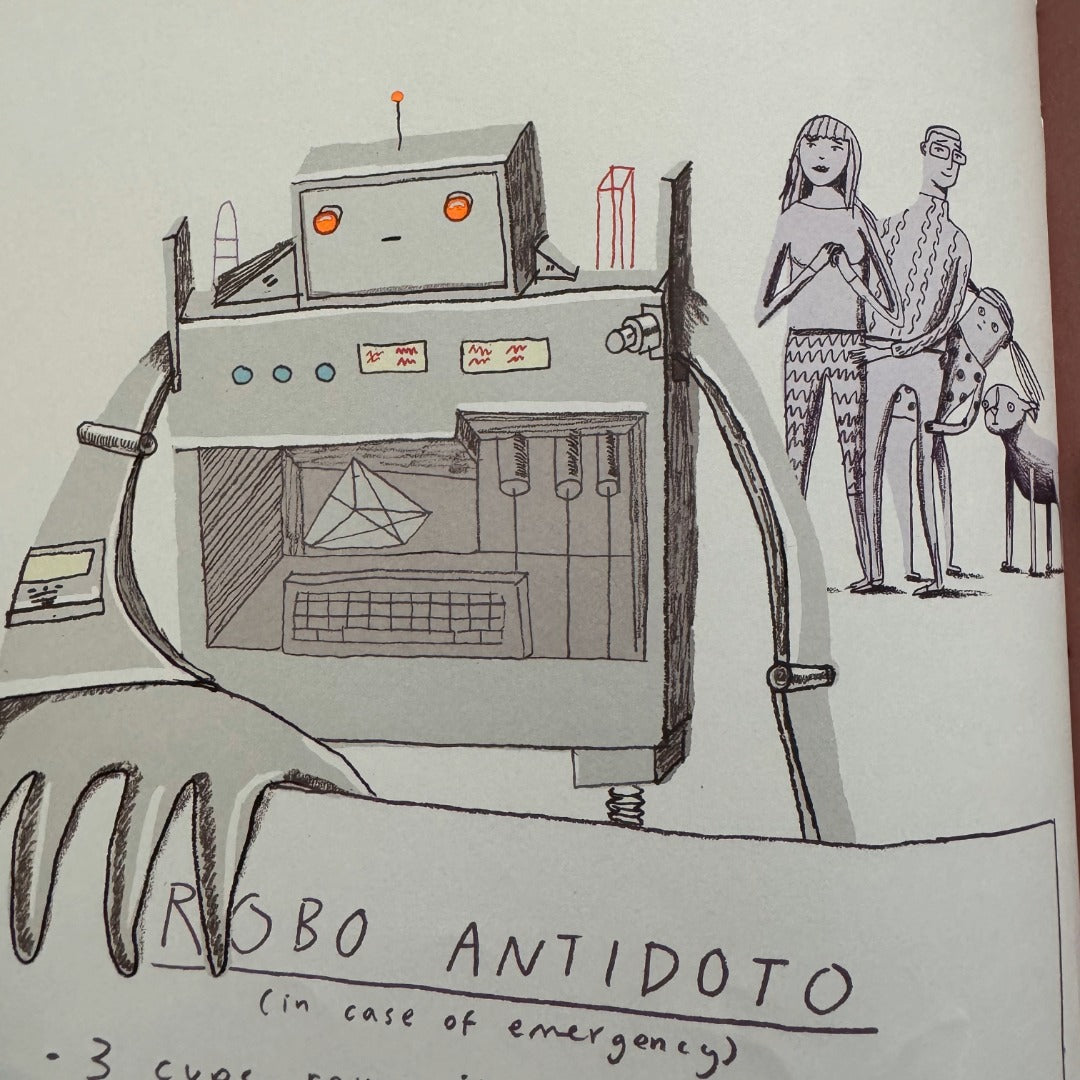 ROBO ANTIDOTO
(in case of emergency)
· 3 cups